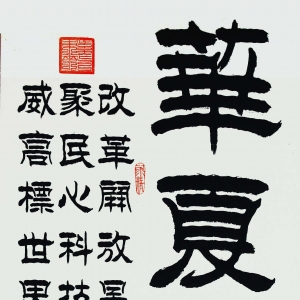 華夏
改革開放
聚民心科技
威高標世界